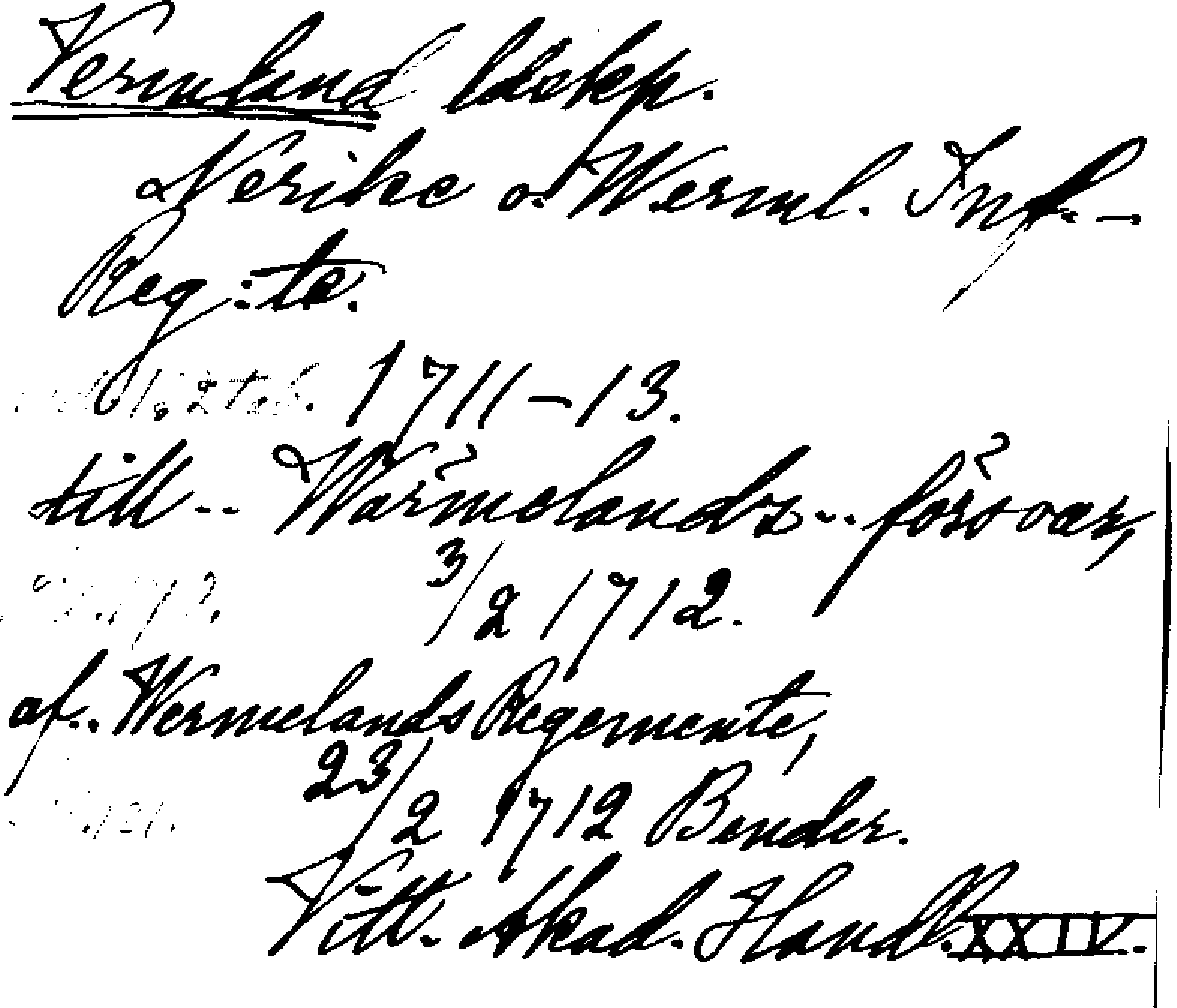 Vermland ldskp.
Nerike o. Werml. Inf.-
Reg:te.
1711-13.
till.. Wärmelandz.. försvar,
3/2 1712.
af.. Wermelands Regemente,
23/2 1712 Bender.
Vitt. Akad. Handl. XXIV.